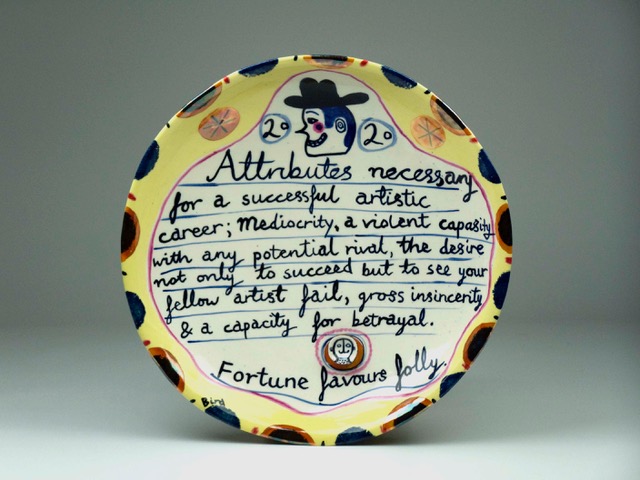 20 20
Attributes necessary
for a successful artistic
career; Mediocrity, a violent capasity
with any potential rival, the desire
not only to succeed but to see your
fellow artist fail, gross insincerity
& a capacity for betrayal.
Fortune favours folly.
Bird